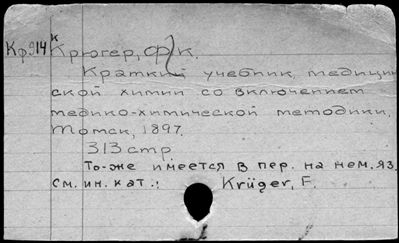 Кр914к Крюгер, Ф.К.
Краткий учебник, медицин
ской химии со включением
медико-химической методики,
Томск, 1897.
313 стр
То-же имеется в пер. на нем. яз.
см. ин. кат.: Krüger, F.